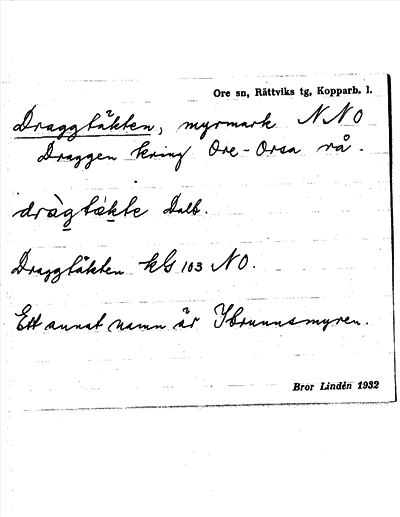 Ore sn, Rättviks tg, Kopparb. l.
Draggtäkten, myrmark NNO
Draggen kring Ore-Orsa rå.
dràgtækte Dalb.
Draggtäkten kG 103 NO.
Ett annat namn är Ybrunnsmyren.
Bror Lindén 1932